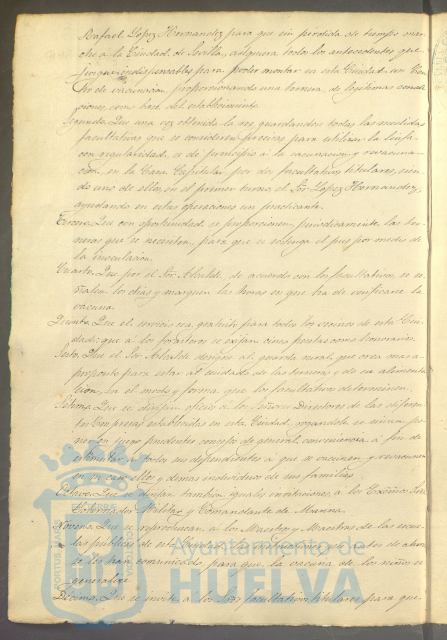 Rafael Lopez Hernandez para que sin pérdida de tiempo mar-
che a la Ciudad de Sevilla, adquiera todos los antecedentes que
juzgue indispensables para poder montar en esta Ciudad un Cen-
tro de vacunación proporcionando una ternera de legítimas condi-
ciones, como base del establecimiento.
Segunda. Que una vez obtenida la res guardandose todas las medidas
facultativas que se consideren precisas para utilizar la linfa
con regularidad, se dé principio á la vacunacion y revacuna-
cion, en la Casa Capitular por dos facultativos titulares, sien-
do uno de ellos, en el primer turno, el Sor. Lopez Hernandez,
ayudando en estas operaciones un practicante.
Tercera. Que con oportunidad se proporcionen periodicamente las ter-
neras que se necesiten, para que se obtenga el pus por medio de
la inoculación.
Cuarta. Que por el Sor. Alcalde, de acuerdo con los facultativos se se-
ñalen los dias y marquen las horas en que ha de verificarse la
vacuna.
Quinta. Que el servicio sea gratuito para todos los vecinos de esta Ciu-
dad; que á los forasteros se exijan cinco pesetas como honorarios.
Sesta. Que el Sor. Alcalde designe al guarda rural que crea mas a
proposito para estar al cuidado de las terneras y de su alimenta-
cion, en el modo y forma que los facultativos determinen.
Sétima. Que se dirijan oficio á los Señores Directores de las diferen-
tes Empresas establecidas en esta Ciudad, rogandole se sirvan po-
ner en juego prudentes consejos de general conveniencia á fin de
estimular a todos sus dependientes á que se vacunen y revacunen
en union ellos y demas individuos de sus familias.
Octava. Que se dirijan tambien iguales invitaciones á los Excmos. Sres.
Gobernador Militar y Comandante de Marina.
Novena. Que se reproduzcan á los Maestros y Maestras de las escue-
las publicas de esta Ciudad, las ordenes que antes de ahora
se les han comunicado, para que la vacuna de los niños se
generalice.
Décima. Que se invite á los Sres. facultativos titulares para que
Ayuntamiento de
HUELVA